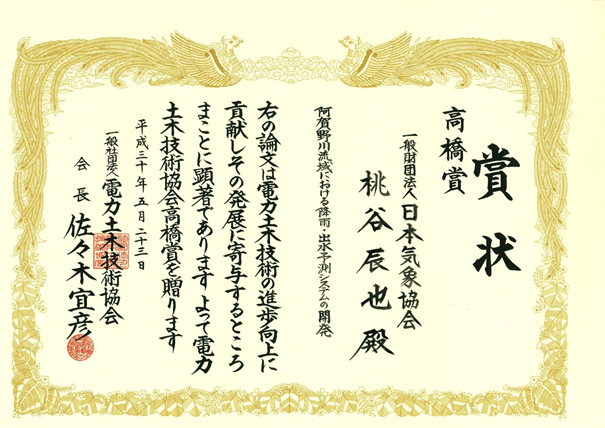 賞状
高橋賞
一般財団法人日本気象協会
桃谷辰也殿
阿賀野川流域における降雨・出水予測システムの開発
右の論文は電力土木技術の進歩向上に
貢献しその発展に寄与するところ
まことに顕著であります よって電力
土木技術協会高橋賞を贈ります
平成三十年五月二十三日
一般社団法人電力土木技術協会
会長 佐々木宜彦